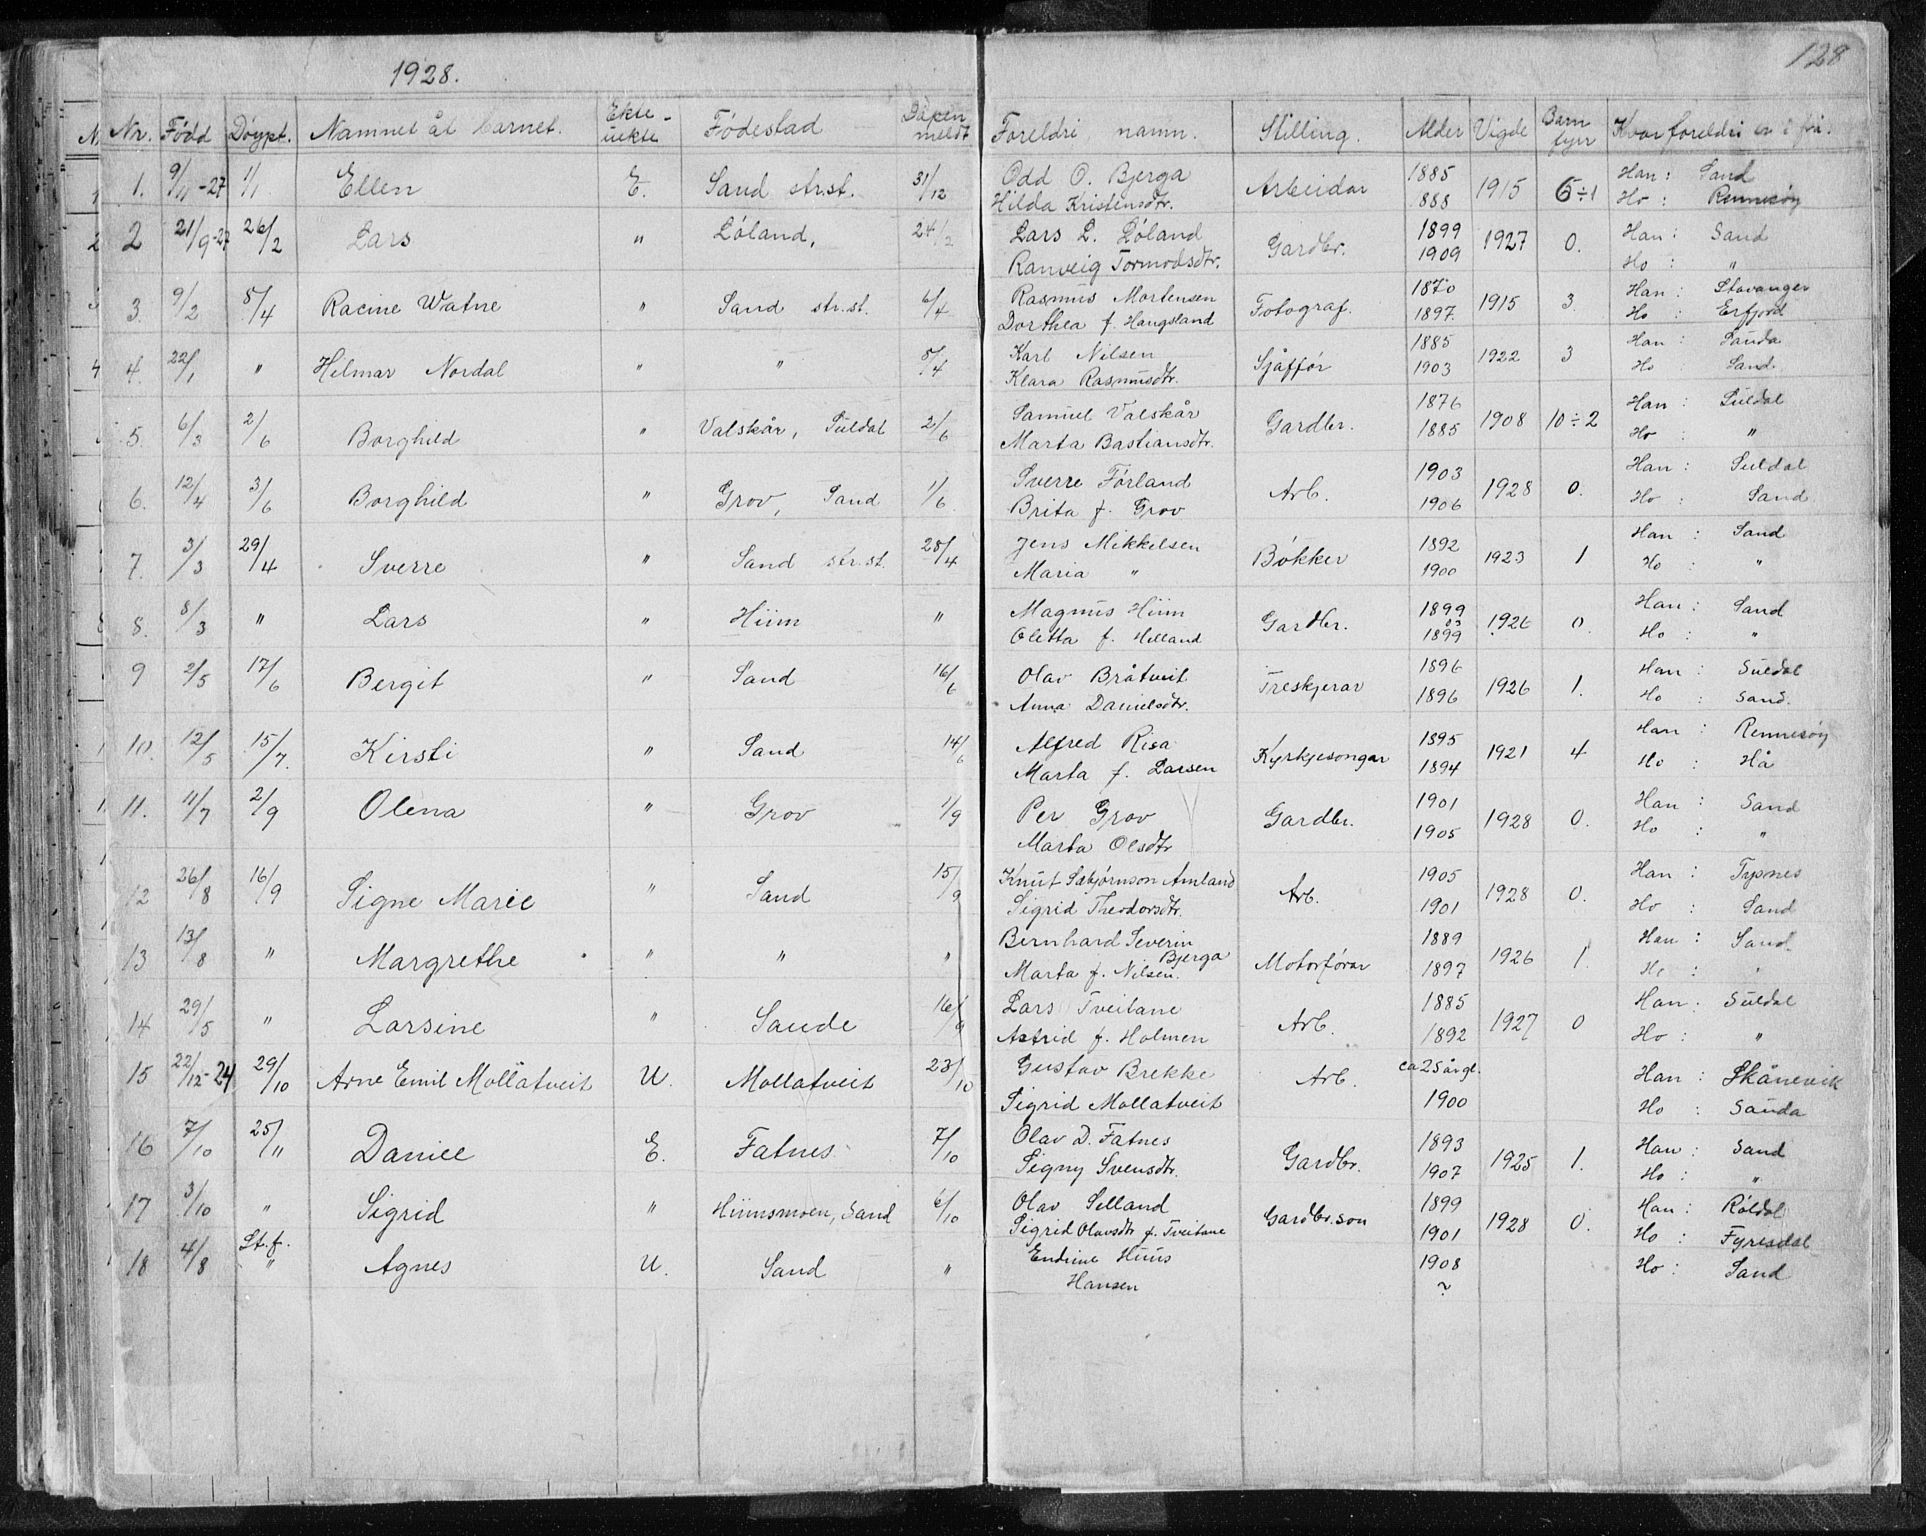 1928.
128
Nr. Född Döypt. Namnet åt barnet. Ekte - uekte Födestad Dåpen meldt Foreldri namn. Stilling. Alder Vigde Barn fyrr Kvar foreldri er i frå.
1. 9/11-27 1/1 Ellen E. Sand str.st. 31/12 Odd O. Bjerga Arbeidar 1885 1915 6÷1 Han: Sand
Hilda Kristensdtr. 888 Ho: Rennesøy
2 21/9-27 26/2 Lars " Løland, 24/2 Lars L. Løland Gardbr. 1899 1927 0. Han: Sand
Ranveig Tormodsdtr. 1909 Ho: "
3. 9/2 8/4 Racine Watne " Sand str.st. 6/4 Rasmus Mortensen Fotograf. 1870 1915 3. Han: Stavanger
Dorthea f. Haugsland 1897. Ho: Erfjord
4. 22/1 " Helmar Nordal " " 5/4 Karl Nilsen Sjåffør 1885 1922 3 Han: Sauda
Klara Rasmusdtr. 1903 Ho: Sand.
5. 6/3 2/6 Borghild " Valskår, Suldal 2/6 Samuel Valskår Gardbr. 1876 1908 10÷2 Han: Suldal
Marta Bastiansdtr. 1885 Ho: "
6. 12/4 3/6 Borghild " Grov, Sand 1/6 Sverre Førland Arb. 1903 1928 0. Han: Suldal
Brita f. Grov 1906 Ho: Sand
7. 3/3 29/4 Sverre " Sand str.st. 28/4 Jens Mikkelsen Bøkker 1892 1923 1 Han: Sand
Maria " 1900 Ho: "
8. 8/3 " Lars " Hiim " Magnus Hiim Gardbr. 1899 1926 0. Han: Sand
Oletta f. Helland 1899 Ho: "
9 2/5 17/6 Bergit " Sand 16/6 Olav Bråtveit Treskjerar 1896 1926 1. Han: Suldal
Anna Danielsdtr. 1896 Ho: Sand.
10. 12/5 15/7. Kirsti " Sand 14/6 Alfred Risa Kyrkjesongar 1895 1921 4 Han: Rennesøy
Marta f. Larsen 1894 Ho: Hå
11. 11/7 2/9 Olena " Grov 1/9 Per Grov Gardbr. 1901 1928 0. Han: Sand
Marta Olsdtr 1905 Ho: "
12 26/8 16/9 Signe Marie " Sand 15/9 Knut Sæbjørnson Amland Arb. 1905 1928 0. Han: Tysnes
Sigrid Theodorsdtr. 1901 Ho: Sand
13 13/8 " Margrethe " " " Bernhard Severin Bjerga Motorførar 1889 1926 1. Han: Sand.
Marta f. Nilsen. 1897 Ho:
14 29/5 " Larsine " Saude 16/9 Lars Tveitane Arb. 1885 1927 0 Han: Suldal
Astrid f. Holmen 1892 Ho: "
15 22/12-24 29/10 Arne Emil Mollatveit U. Mollatveit 28/10 Gustav Brekke Arb. ca 25 år gl. Han: Skånevik
Sigrid Mollatveit 1900 Ho: Sauda
16 7/10 25/11 Daniel E. Fatnes 7/10 Olav D. Fatnes Gardbr. 1893 1925 1. Han: Sand
Signy Svensdtr. 1907 Ho: "
17 3/10 " Sigrid " Hiimsmoen, Sand 6/10 Olav Selland Gardbr. son 1899 1928 0. Han: Røldal
Sigrid Olavsdtr f. Tveitane 1901 Ho: Fyresdal
18 4/8 St. f. " Agnes U. Sand " Endrine Huus 1908 Ho: Sand
Hansen ~